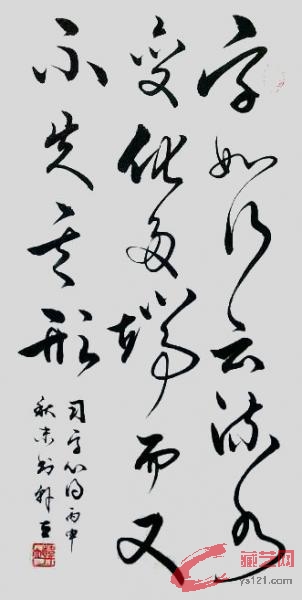 字如行云流水
变化多端而又
不失其形
习字心得丙申
秋末
藏艺网
ys121.com